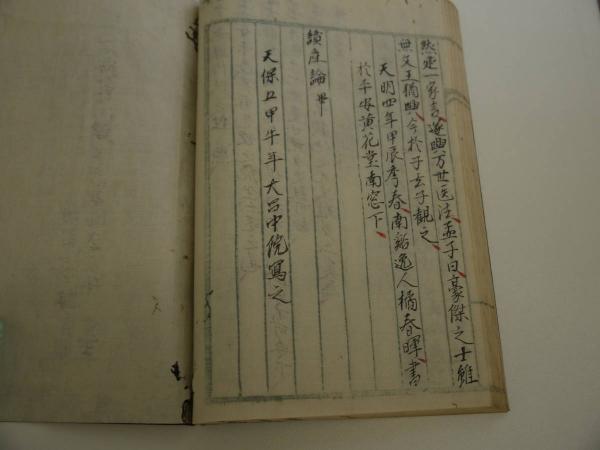 然建一家言遂興万世医法孟子曰豪傑之士雖
無文王猶興今於子玄子観之
天明四年甲辰季春南谿逸人橘春暉書
於平安黄花堂南窓下
續産論畢
天保五甲午年大呂中院寫之